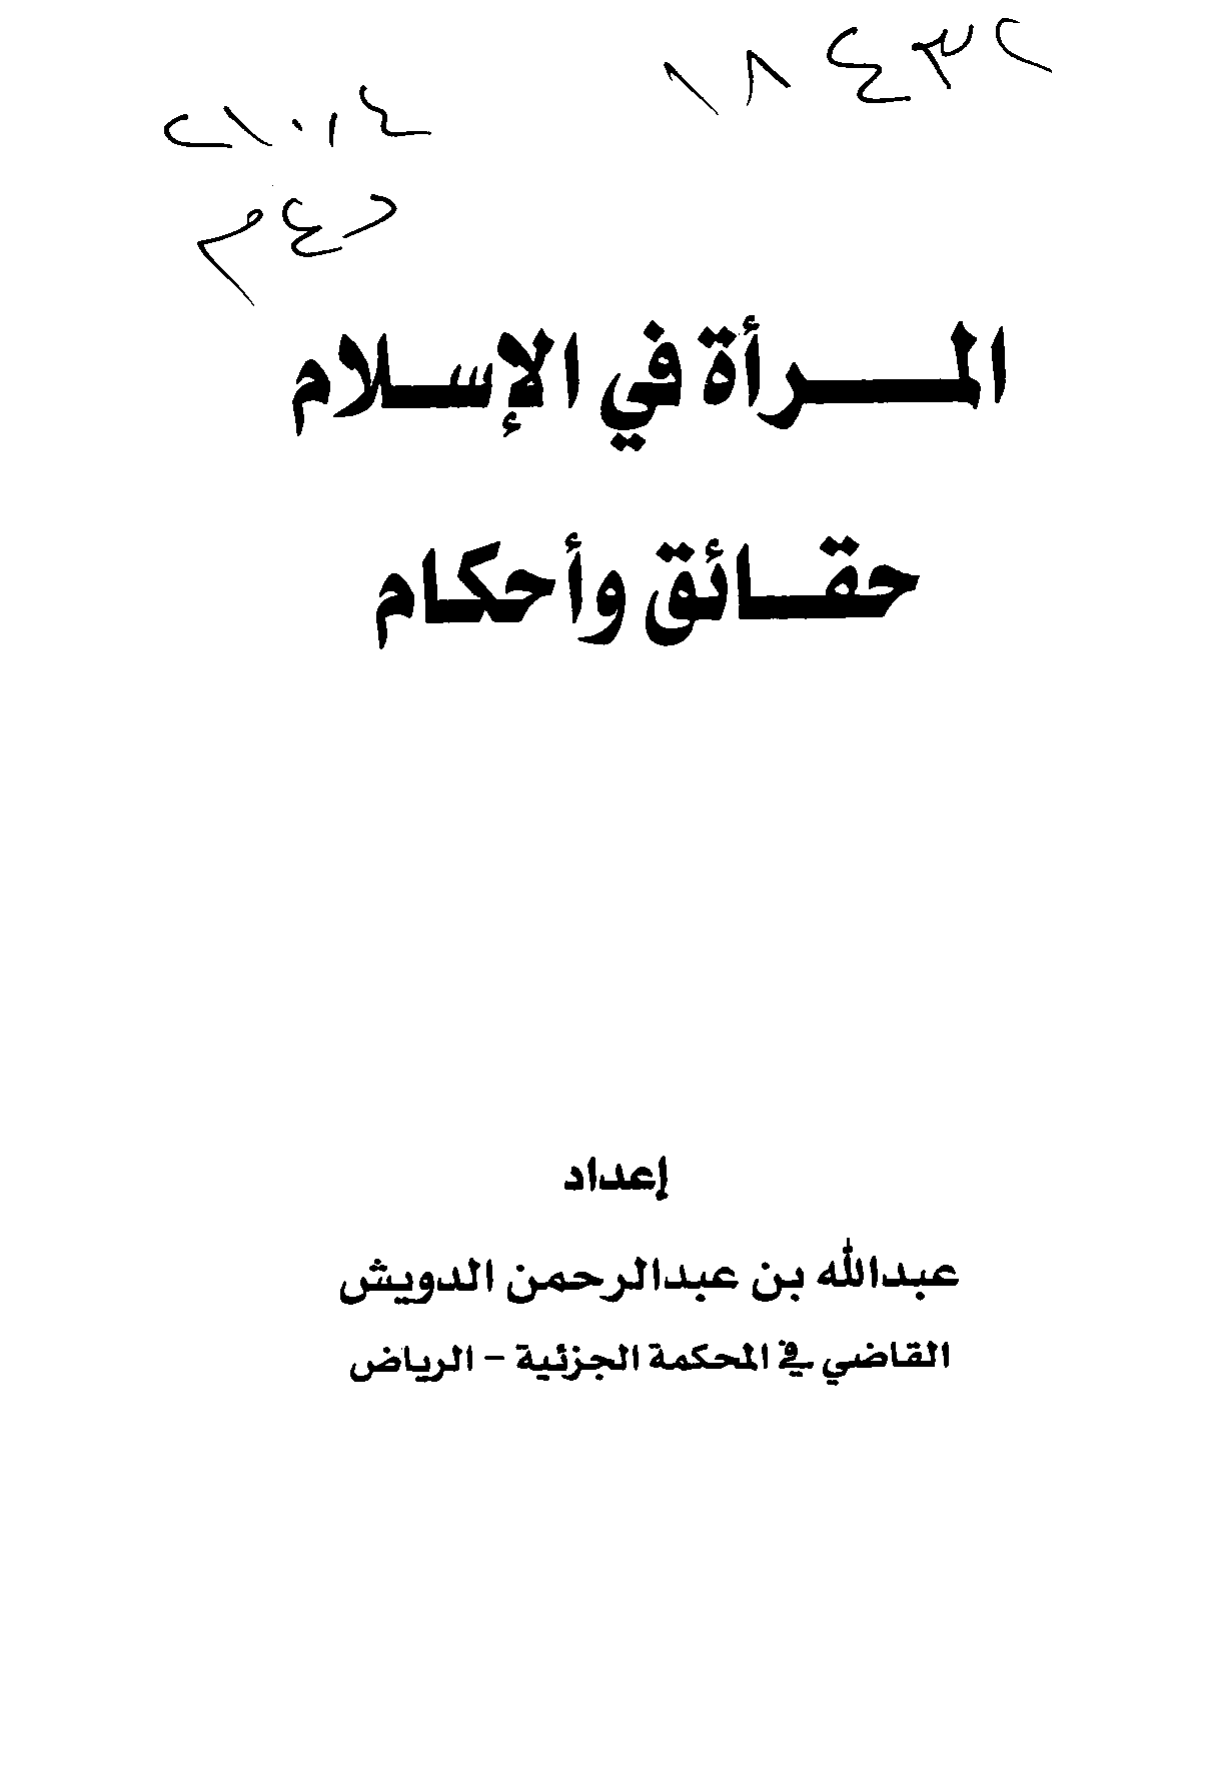 ١٨٤٣٢
٢١٠,١٤
د ع م
المرأة في الإسلام
حقائق وأحكام
إعداد
عبدالله بن عبدالرحمن الدويش
القاضي في المحكمة الجزئية - الرياض